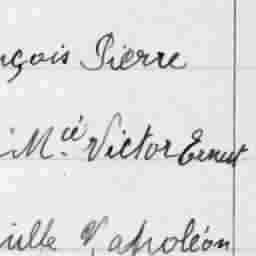 nçois Pierre
Mcé Victor Ernest
ille Napoléon